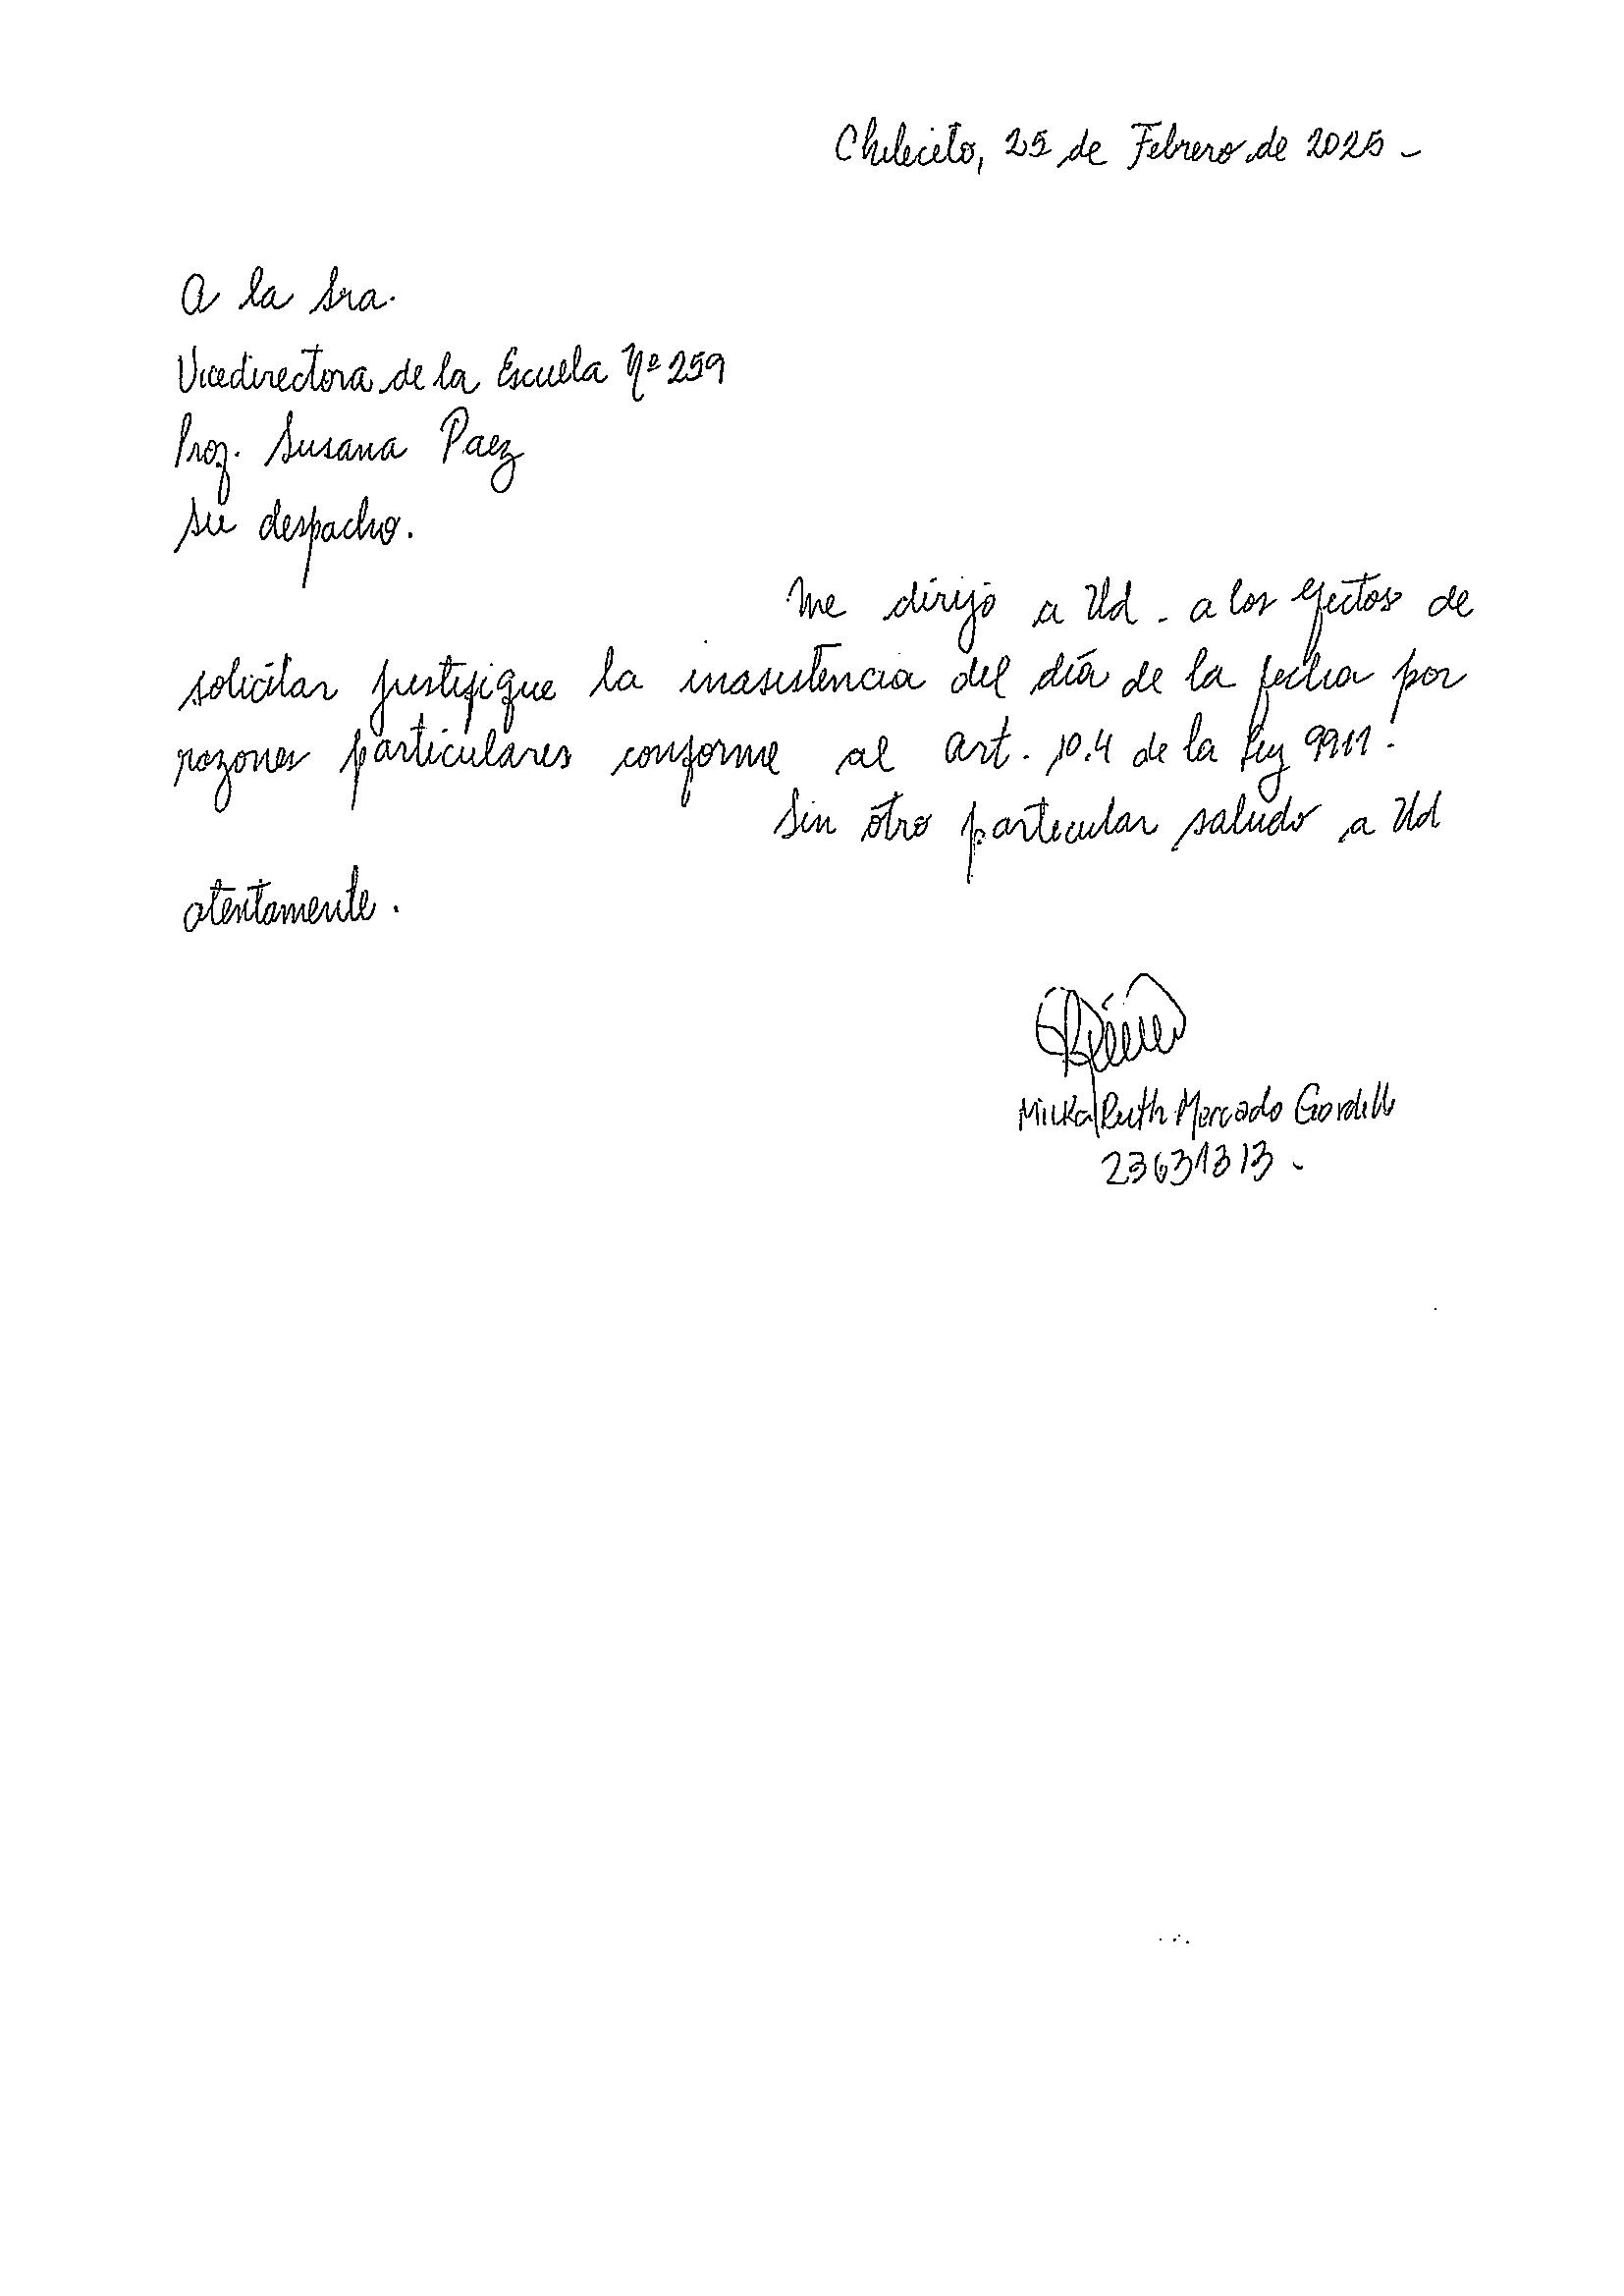 Chilecito, 25 de Febrero de 2025 -
A la Sra.
Vicedirectora de la Escuela Nº 259
Prof. Susana Paez
Su despacho.
Me dirijo a Ud. a los efectos de
solicitar justifique la inasistencia del día de la fecha por
razones particulares conforme al art. 10.4 de la Ley 9911.
Sin otro particular saludo a Ud
atentamente.
Ruth Mercado Gordillo
23631313 -